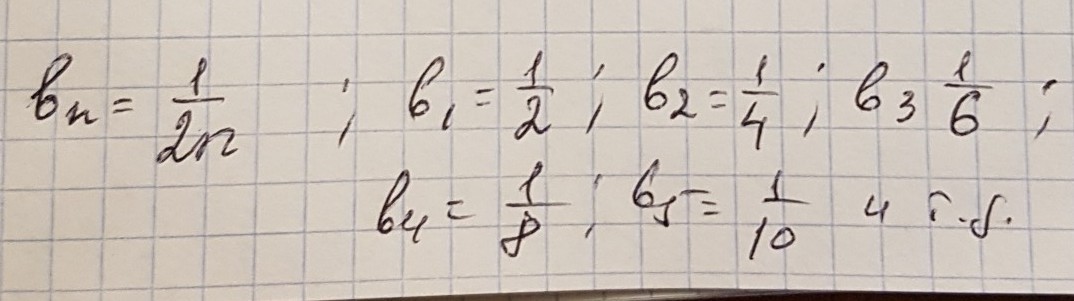 bₙ = 1/2n ; b₁ = 1/2 ; b₂ = 1/4 ; b₃ 1/6 ;
b₄ = 1/8 ; b₅ = 1/10 и т.д.